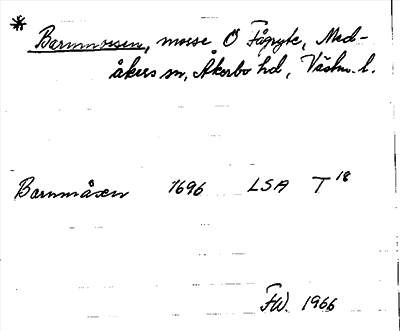 * Barnmossen, mosse Ö Fågryte, Med-
åkers sn, Åkerbo hd, Västm. l.
Barnmåsen 1696 LSA T 18
FW. 1966